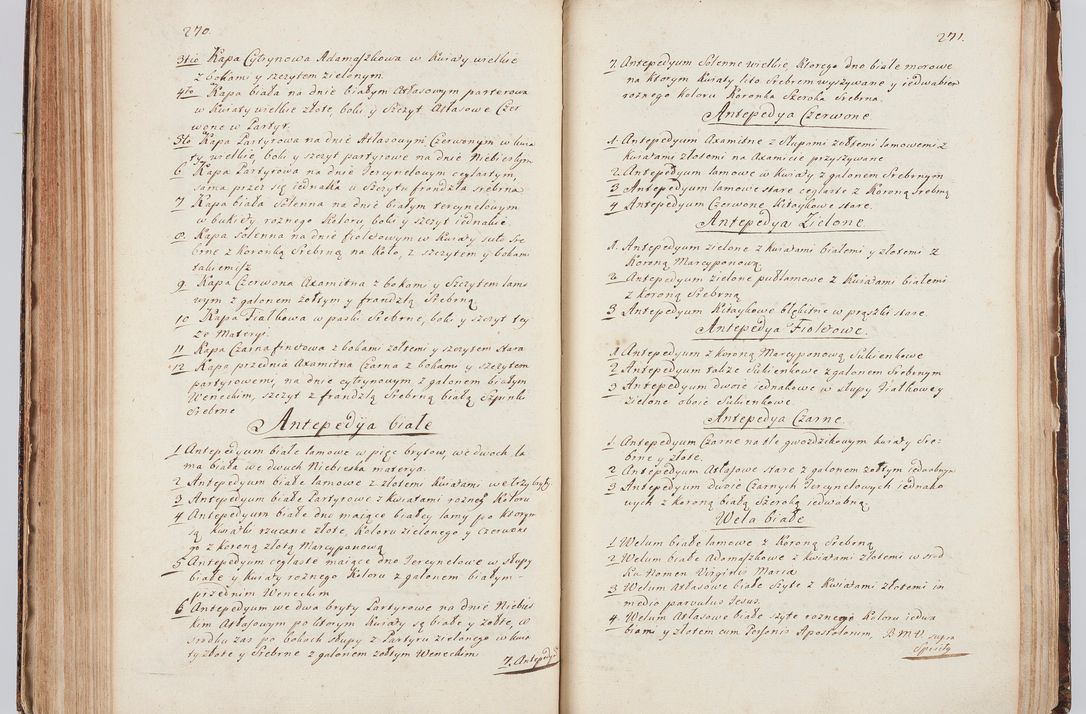 270.
3tio Kapa Cytrynowa Adamaszkowa w Kwiaty wielkie
z bokami y szczytem zielonym.
4to Kapa biała na dnie białym Atłasowym parterowa
w Kwiaty wielkie złote, boki y Szczyt Atłasowe Czer
wone w Partyr.
5to Kapa Partyrowa na dnie Atłasowym Czerwonym w kwia
ty wielkie, boki y szczyt partyrowe na dnie Niebieskym
6 Kapa Partyrowa na dnie Tercynelowym ceglastym,
sama przez się iednaka u Szczytu frandzla srebrna
7 Kapa biała Solenna na dnie białym tercynelowym
w bukiety roznego Koloru, boki y szczyt iednakie.
8. Kapa solenna na dnie fioletowym w Kwiaty suto Sre
brne z Koronką Srebrną na Koło, z szczytem y bokami
takiemisz
9 Kapa Czerwona Axamitna z bokami y Szczytem lamo
wym z galonem żołtym y frandzlą Srebrną
10 Kapa Fiałkowa w paski Srebrne, boki y szczyt tey
że Materyi
11 Kapa Czarna finetowa z bokami zołtemi y szczytem stara
12 Kapa przednia Axamitna Czarna z bokami y szczytem
partyrowemi, na dnie cytrynowym z galonem białym
Weneckim, szczyt z frandzlą Srebrną białą Szpinki
Srebrne
Antepedya białe
1 Antepedyum białe lamowe w pięc brytow, we dwoch la
ma biała we dwuch Niebieska materya.
2 Antepedyum białe lamowe z złotemi Kwiatami we trzy bryty
3 Antepedyum białe Partyrowe z Kwiatami roznego Koloru
4 Antepedyum białe dno maiące białey lamy po ktorym
są kwiatki rzucane złote, Koloru zielonego y czerwone
go z Koroną złotą Marcypanową
5 Antepedyum ceglaste maiące dno Tercynelowe w słupy
białe y Kwiaty roznego Koloru z galonem białym
przednim Weneckim
6 Antepedyum we dwa bryty Partyrowe na dnie Niebies
kim Atłasowym po ktorym Kwiaty są białe y zołte, w
srodku zas po bokach słupy z Partyru zielonego w kwia
ty złote y Srebrne z galonem zołtym Weneckim
7. Antepedyu
271.
7 Antepedyum Solenne wielkie, ktorego dno białe morowe
na ktorym Kwiaty lito Srebrem wyszywane y iedwabiem
roznego Koloru Koronka Szeroka Srebrna.
Antepedya Czerwone.
1 Antepedyum Axamitne z słupami zołtemi lamowemi z
Kwiatami złotemi na Axamicie przyszywane
2 Antepedyum lamowe w kwiaty z galonem Srebrnym
3 Antepedyum lamowe stare ceglaste z Koroną Srebrną
4 Antepedyum Czerwone Kitaykowe stare.
Antepedya Zielone.
1. Antepedyum zielone z kwiatami białemi y złotemi z
Koroną Marcyponową.
2 Antepedyum zielone pułlamowe z Kwiatami białemi
z koroną Srebrną
3 Antepedyum Kitaykowe błękitne w prążki stare.
Antepedya Fioletowe.
1 Antepedyum z koroną Marcyponową Sukienkowe
2 Antepedyum także Sukienkowe z galonem Srebrnym
3 Antepedyum dwoie iednakowe w słupy Fiałkowe y
zielone oboie Sukienkowe.
Antepedya Czarne.
1 Antepedyum Czarne na tle gwozdzikowym kwiaty Sre-
brne y złote.
2 Antepedyum Atłasowe stare z galonem zołtym iedwabnym
3 Antepedyum dwoie Czarnych Tercynelowych iednako
wych z koroną białą Szeroką iedwabną.
Wela białe
1 Welum białe lamowe z Koroną Srebrną
2 Welum białe Adamaszkowe z kwiatami złotemi w srod
ku Nomen Virginis Maria
3 Welum Atłasowe białe Szyte z Kwiatami złotemi in
medio parvulus Jesus.
4. Welum Atłasowe białe szyte roznego Koloru iedwa
biami y złotem cum Personis Apostolorum, B M V. supra
Spiritų